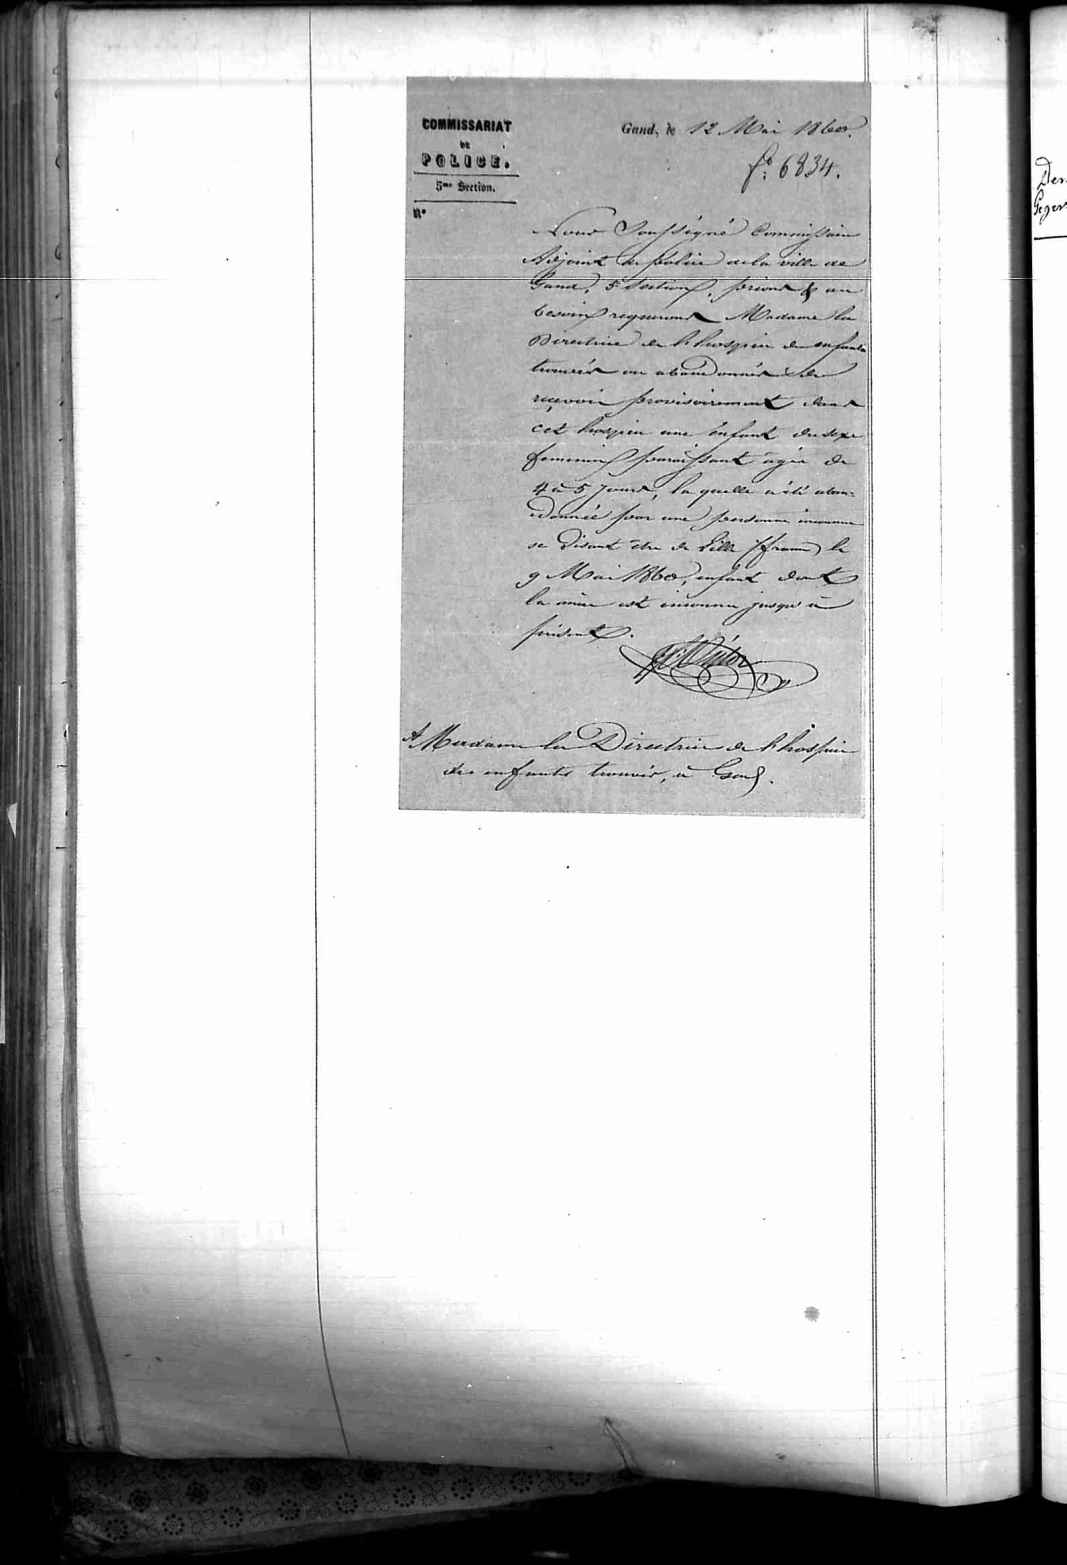 COMMISSARIAT
DE
POLICE.
5me Section.
No
Gand, le 12 Mai 1860.
fo: 6834.
Nous Soussigné Commissaire
Adjoint de police de la ville de
Gand, 5e Section, prions & au
besoin requerons Madame la
Directrice de l'hospice des enfants
trouvés ou abandonnés de
reçevoir provisoirement dans
cet hospice une enfant du sexe
feminin paraissant agée de
4 à 5 jours, la quelle a été aban-
donnée par une personne inconnue
se disant être de Lille (france) le
9 Mai 1860, enfant dont
la mère est inconnue jusqu'à
présent.
A Madame la Directrice de l'hospice
des enfants trouvés, à Gand.
Der